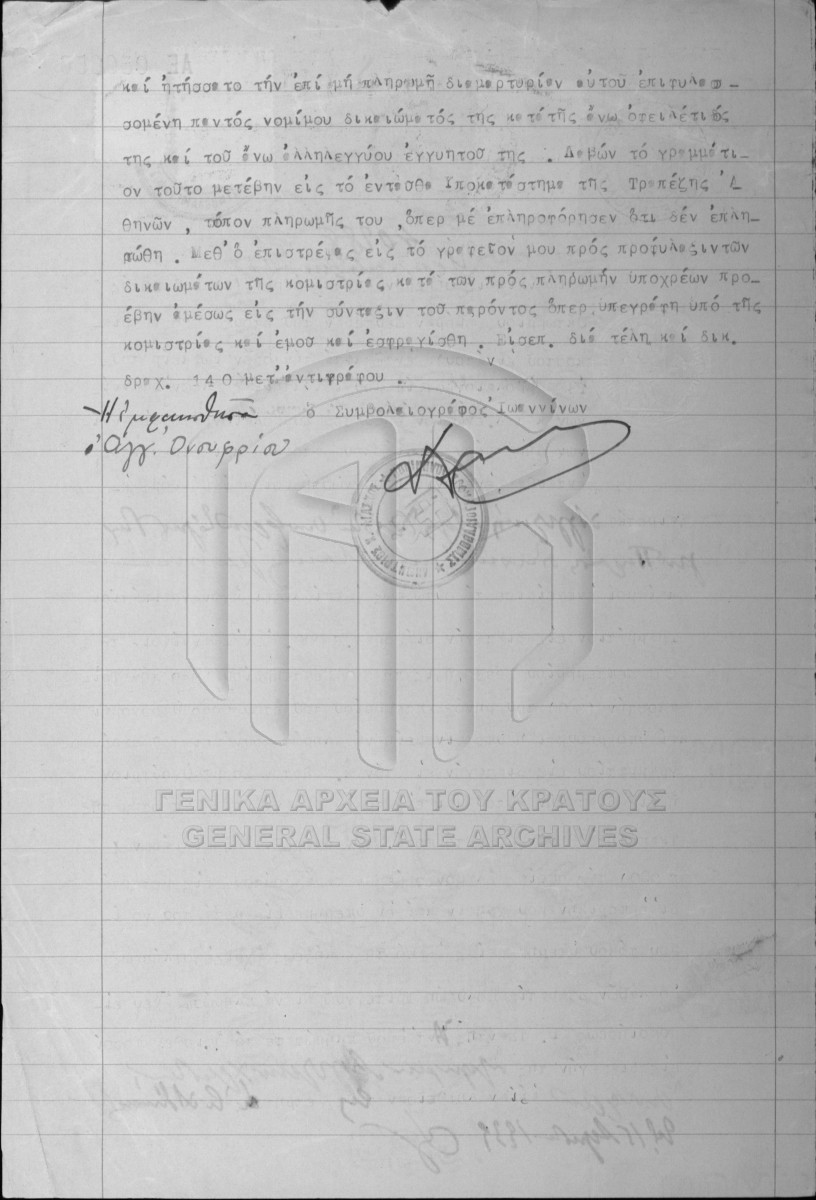 καί ἠτήσατο τήν ἐπί μή πληρωμῇ διαμαρτυρίαν αὐτοῦ ἐπιφυλασ-
σομένη παντός νομίμου δικαιώματός της κατάτῆς ἄνω ὀφειλέτιδός
της καί τοῦ ἄνω ἀλληλεγγύου ἐγγυητοῦ της . Λαβών τό γραμμάτι-
ον τοῦτο μετέβην εἰς τό ἐνταῦθα Ὑποκατάστημα τῆς Τραπέζης Ἀ
θηνῶν , τόπον πληρωμῆς του , ὅπερ μέ ἐπληροφόρησεν ὅτι δέν ἐπλη-
ρώθη . Μεθ'ὅ ἐπιστρέψας εἰς τό γραφεῖον μου πρός προφύλαξιντῶν
δικαιωμάτων τῆς κομιστρίας κατά των πρός πληρωμήν ὑποχρέων προ-
έβην ἀμέσως εἰς τήν σύνταξιν τοῦ παρόντος ὅπερ ὑπεγράφη ὑπό τῆς
κομιστρίας καί ἐμοῦ καί ἐσφραγίσθη . Εἰσεπ. διά τέλη καί δικ.
δραχ. 140 μετ'ἀντιγράφου .
Ἡ ἐμφανισθεῖσα ὁ Συμβολαιογράφος Ἰωαννίνων
Ἀγγ. Ὀνουφρίου
ΓΕΝΙΚΑ ΑΡΧΕΙΑ ΤΟΥ ΚΡΑΤΟΥΣ
GENERAL STATE ARCHIVES